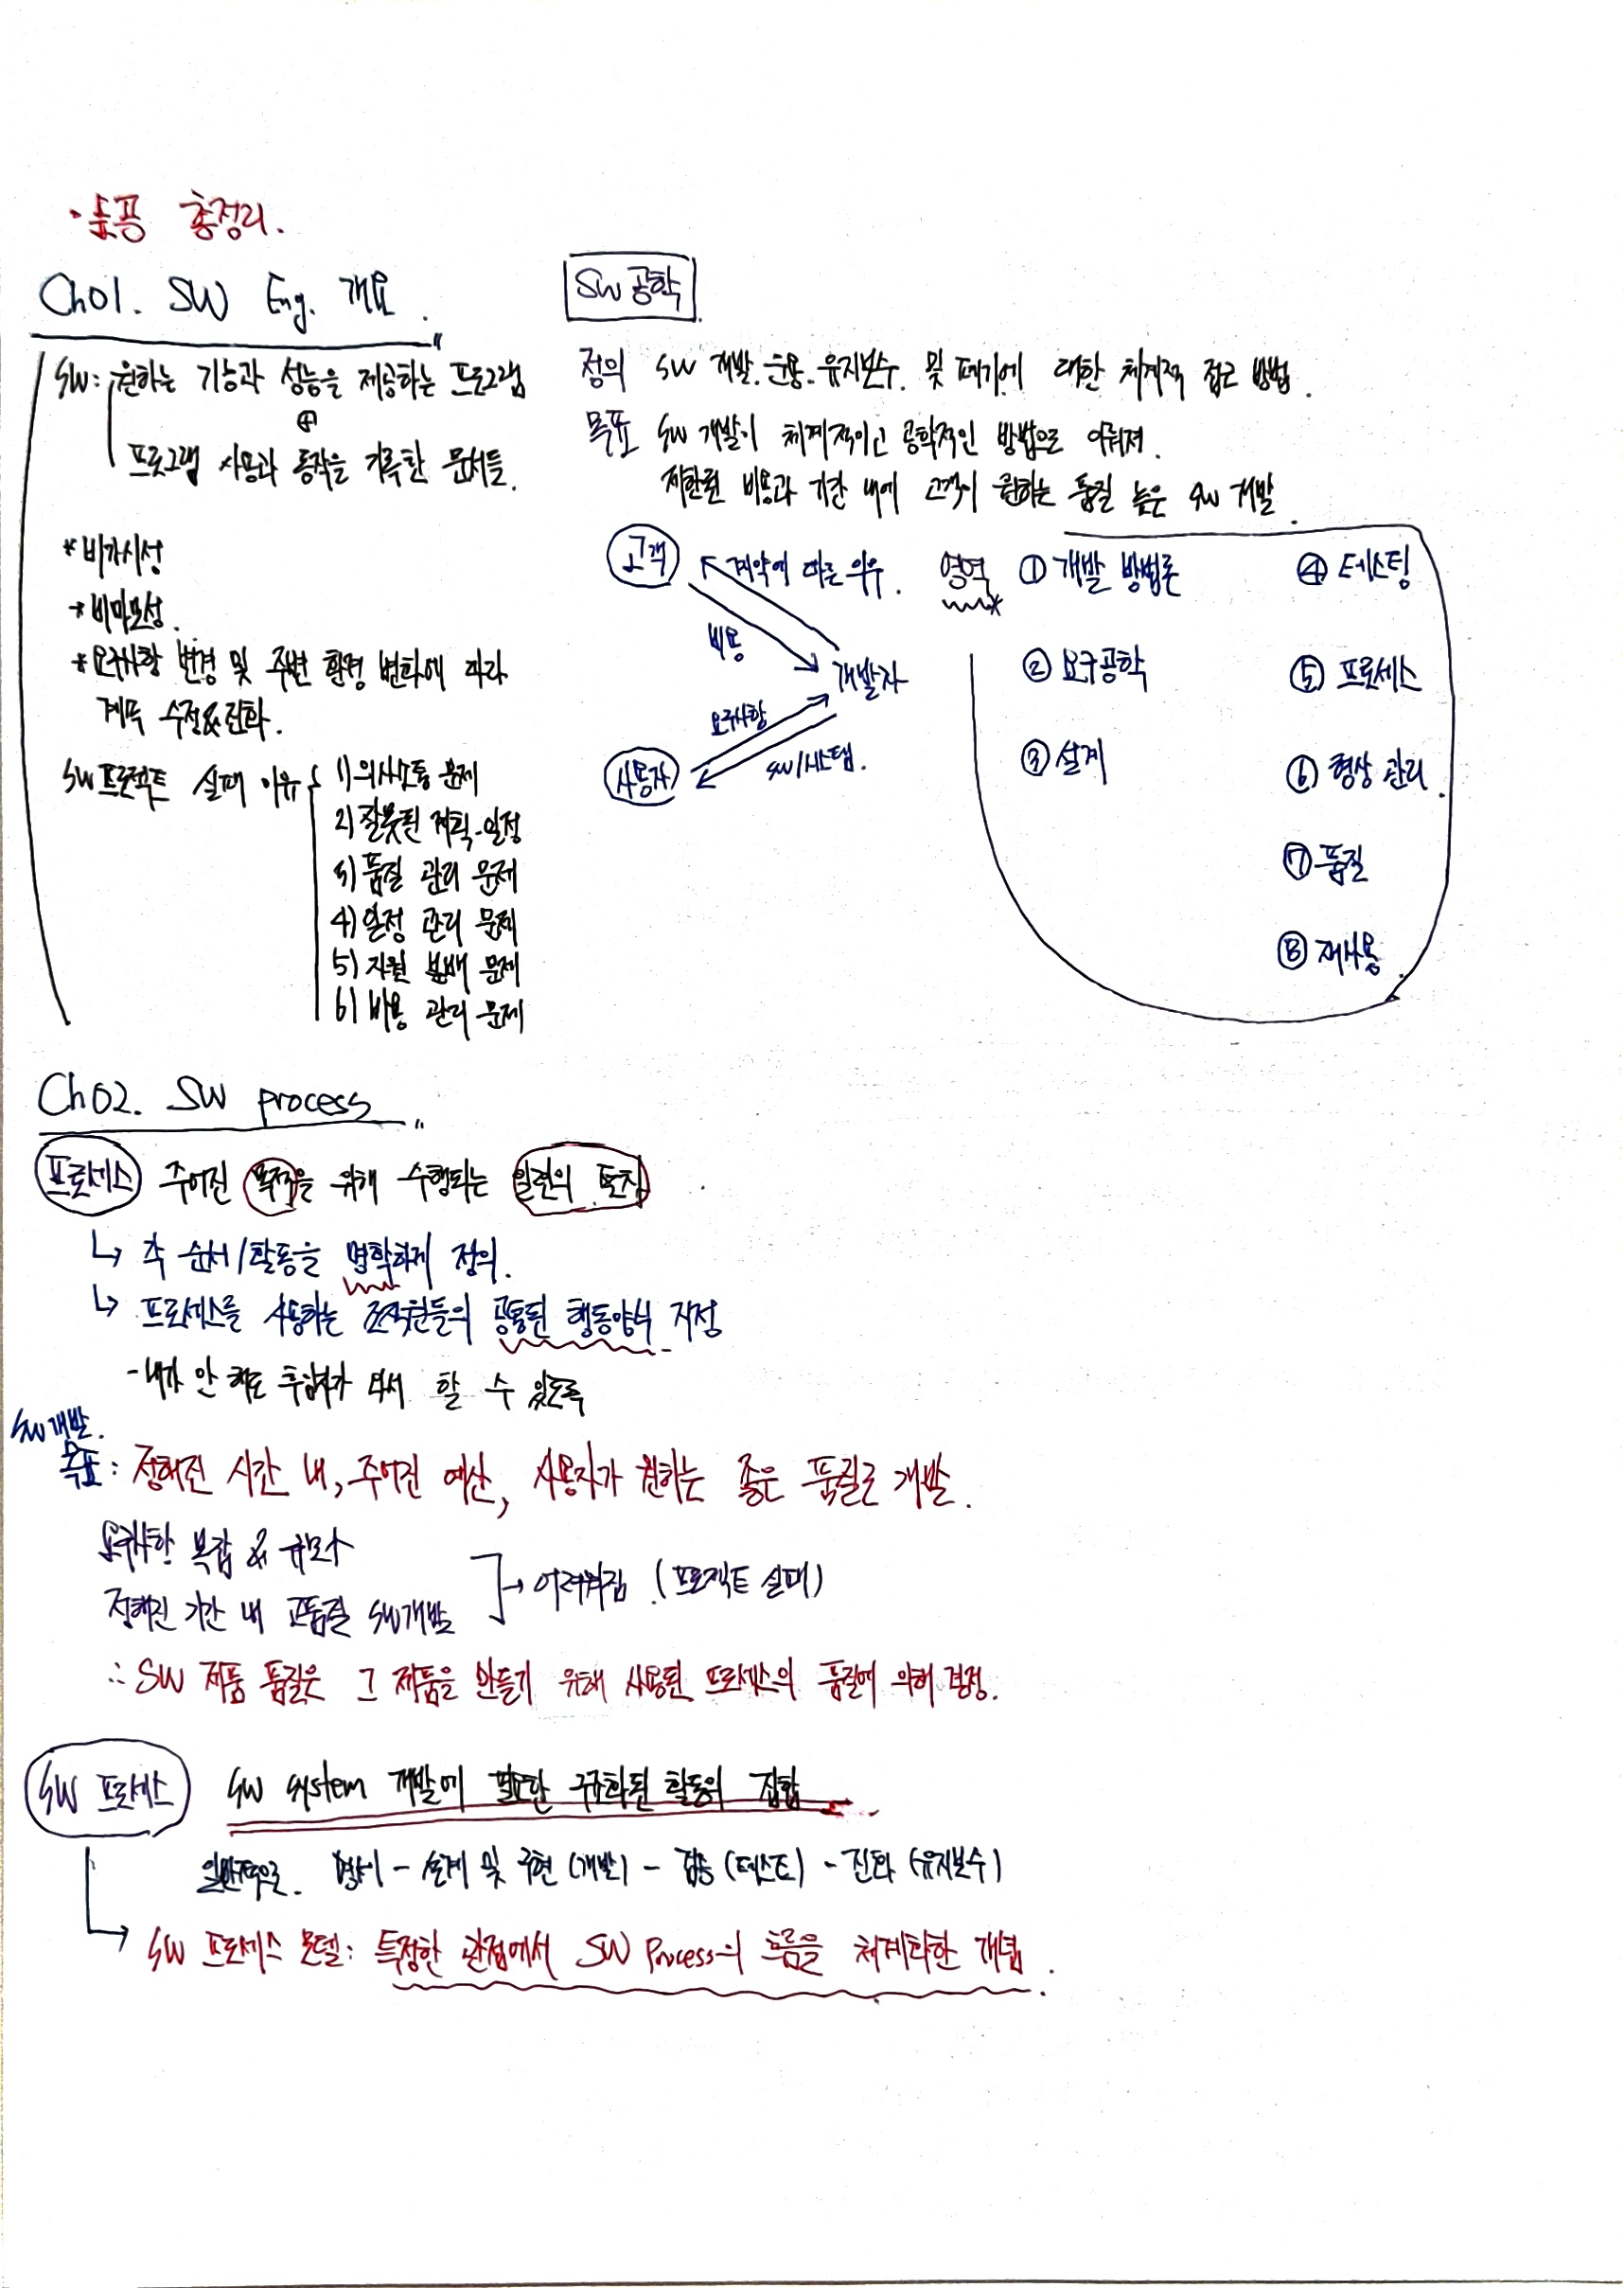 · 소공 총정리.
Ch01. SW Eng. 개요.
SW: 원하는 기능과 성능을 제공하는 프로그램
⊕
프로그램 사용과 동작을 기록한 문서들.
* 비가시성
* 비마모성.
* 요구사항 변경 및 주변 환경 변화에 따라
계속 수정&진화.
SW프로젝트 실패 이유
1) 의사소통 문제
2) 잘못된 계획-일정
3) 품질 관리 문제
4) 일정 관리 문제
5) 자원 분배 문제
6) 비용 관리 문제
SW 공학
정의 SW 개발.운용.유지보수. 및 폐기에 대한 체계적 접근 방법.
목표 SW 개발이 체계적이고 공학적인 방법으로 이뤄져.
제한된 비용과 기간 내에 고객이 원하는 품질 높은 SW 개발.
고객
계약에 따른 의무.
비용
개발자
요구사항
SW/시스템.
사용자
영역*
① 개발 방법론
② 요구공학
③ 설계
④ 테스팅
⑤ 프로세스
⑥ 형상 관리
⑦ 품질
⑧ 재사용
Ch02. SW process
프로세스 주어진 목적을 위해 수행되는 일련의 절차
↳ 각 순서/활동을 명확하게 정의.
↳ 프로세스를 사용하는 조직원들의 공통된 행동양식 지정
- 내가 안 해도 후임자가 와서 할 수 있도록
SW개발.
목표: 정해진 시간 내, 주어진 예산, 사용자가 원하는 좋은 품질로 개발.
요구사항 복잡 & 규모
정해진 기간 내 고품질 SW개발
→ 어려워짐. (프로젝트 실패)
∴ SW 제품 품질은 그 제품을 만들기 위해 사용된 프로세스의 품질에 의해 결정.
SW 프로세스 SW system 개발에 필요한 구조화된 활동의 집합
일반적으로. 명세 - 설계 및 구현(개발) - 검증(테스트) - 진화(유지보수)
→ SW 프로세스 모델: 특정한 관점에서 SW Process의 흐름을 체계화한 개념.